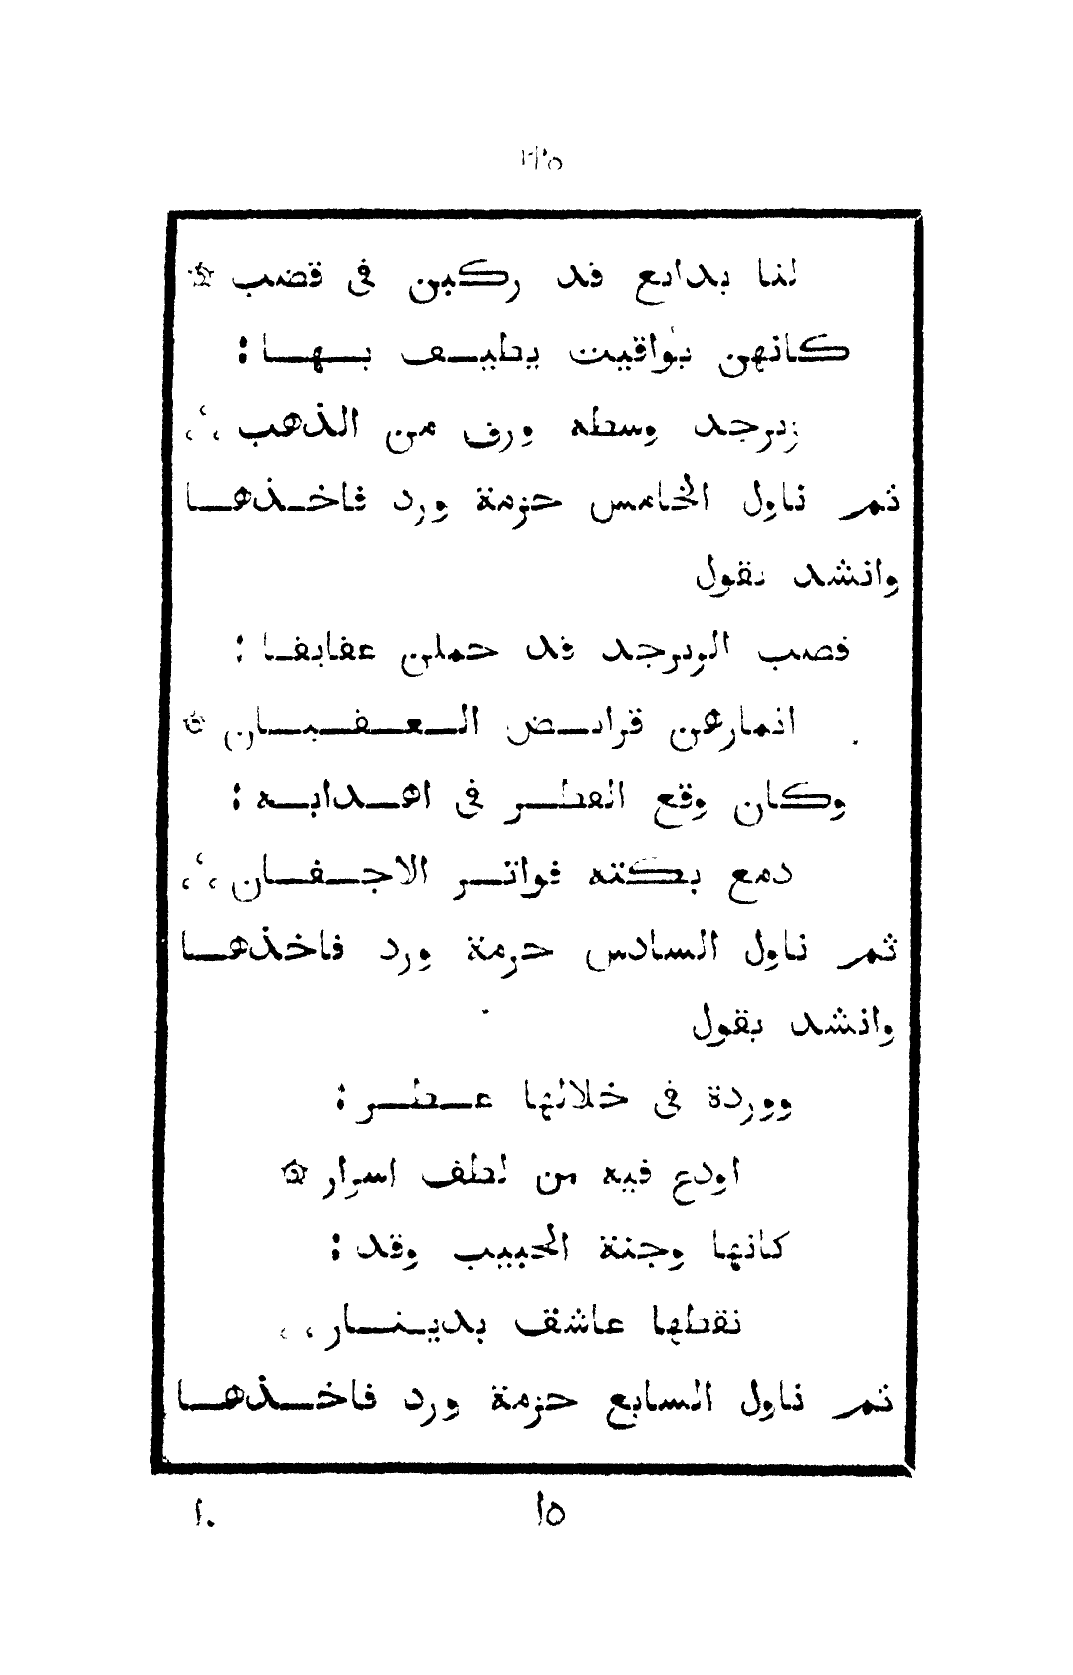 لنا بدايع قد ركبن فى قضب ۞
كانهن يواقيت يطيف بها :
زبرجد وسطه ورق من الذهب ،‘،
ثم ناول الخامس حزمة ورد فاخذها
وانشد يقول
قضب الزبرجد قد حملن عقايقا :
اثمارهن قرايض العقيان ۞
وكان وقع القطر فى اهدابه :
دمع بكته فواتر الاجفان ،‘،
ثم ناول السادس حزمة ورد فاخذها
وانشد يقول
ووردة فى خلالها عطر :
اودع فيه من لطف اسرار ۞
كانها وجنة الحبيب وقد :
نقطها عاشق بدينار ، ،
ثم ناول السابع حزمة ورد فاخذها
١٠ ١٥